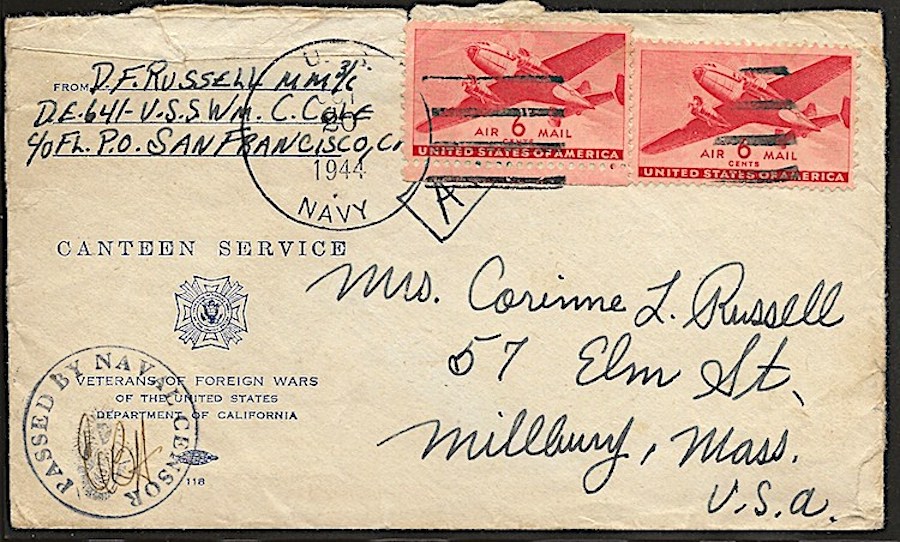 FROM D.F. RUSSELL MM 3/C
D.E. 641 - U.S.S WM. C. COLE
C/O FL. P.O. SAN FRANCISCO, CA
U.S.
20
1944
NAVY
A
AIR 6 MAIL
CENTS
UNITED STATES OF AMERICA
AIR 6 MAIL
CENTS
UNITED STATES OF AMERICA
CANTEEN SERVICE
Mrs. Corinne L. Russell
57 Elm St.
Millbury, Mass.
U.S.A.
VETERANS OF FOREIGN WARS
OF THE UNITED STATES
DEPARTMENT OF CALIFORNIA
118
PASSED BY NAVAL CENSOR